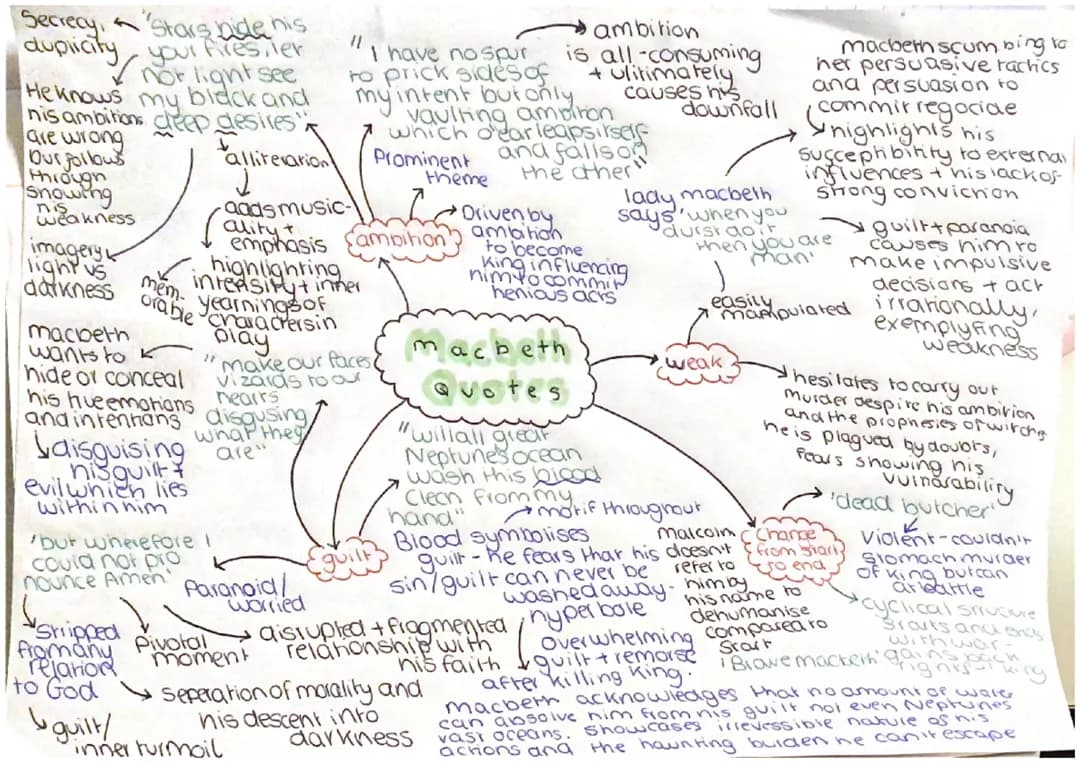 Macbeth
Quotes
ambition
"Stars hide his
your fires, let
not light see
my black and
deep desires"
Secrecy,
duplicity
He knows
his ambitions
are wrong
but follows
through
showing
his
weakness
imagery
light vs
darkness
alliteration
adds music-
ality +
emphasis
highlighting
intensity + inner
yearnings of
characters in
play
mem-
orable
"I have no spur
to prick sides of
my intent but only
vaulting ambition
which o'erleaps itself
and falls of
the other"
ambition
is all-consuming
+ ulitimately
causes his
downfall
Prominent
theme
Driven by
ambition
to become
king influencing
him to commit
henious acts
weak
easily
manipulated
lady macbeth
says 'when you
durst do it
then you are
man'
macbeth scumbing to
her persuasive tactics
and persuasion to
commit regocide
highlights his
succephbility to external
influences + his lack of
strong conviction
guilt + paranoia
causes him to
make impulsive
decisions + act
irrationally,
exemplying
weakness
hesitates to carry out
murder despite his ambition
and the prophesies of witches
he is plagued by doubts,
fears showing his
vulnarability
Change
from start
to end
'dead butcher'
Violent - couldn't
stomach murder
of king but can
at battle
cyclical structure
starts and ends
with war-
gains back
rights of king
malcolm
doesn't
refer to
him by
his name to
dehumanise
compared to
start
'Brave macbeth'
guilt
"make our faces
vizards to our
hearts
disgusing
what they
are"
macbeth
wants to
hide or conceal
his true emotions
and intentions
disguising
his guilt +
evil which lies
within him
"will all great
Neptunes ocean
wash this blood
clean from my
hand"
motif throughout
Blood symbolises
guilt - he fears that his
sin/guilt can never be
washed away-
hyperbole
overwhelming
guilt + remorse
after killing king.
macbeth acknowledges that no amount of water
can absolve him from his guilt not even Neptunes
vast oceans. Showcases irrevessible nature of his
actions and the haunting burden he can't escape
Paranoid/
worried
'but wherefore I
could not pro
nounce Amen'
Stripped
from any
relation
to God
guilt/
inner turmoil
Pivotal
moment
seperation of morality and
his descent into
darkness
disrupted + fragmented
relahonship with
his faith